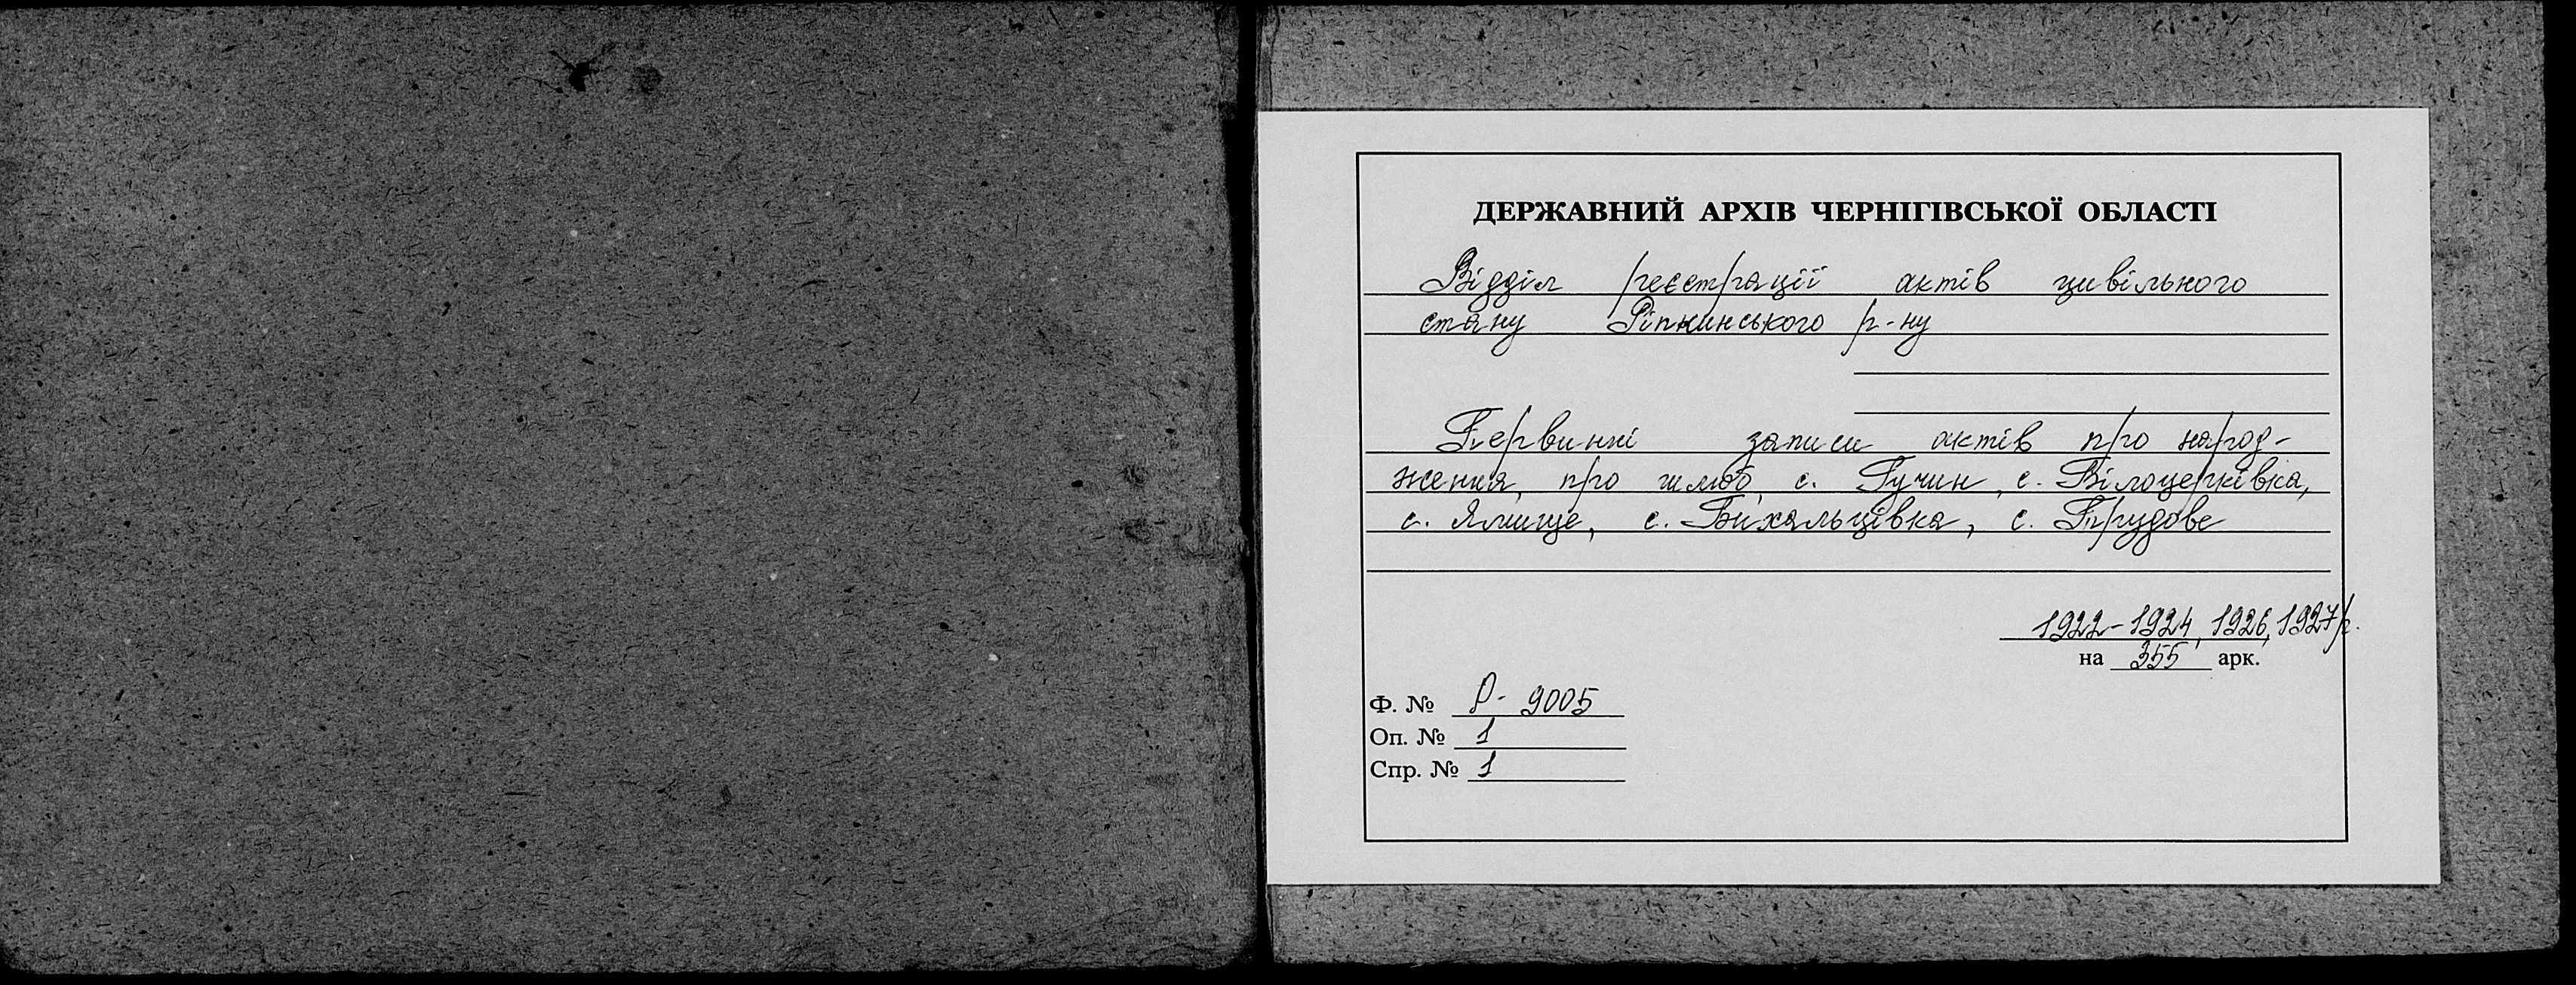 ДЕРЖАВНИЙ АРХІВ ЧЕРНІГІВСЬКОЇ ОБЛАСТІ
Відділ реєстрації актів цивільного
стану Ріпкинського р-ну
Первинні записи актів про народ-
ження, про шлюб, с. Гучин, с. Білоцерківка,
с. Ямище, с. Вихальцівка, с. Прудове
1922-1924, 1926, 1927 р.
на 355 арк.
Ф. № Р- 9005
Оп. № 1
Спр. № 1